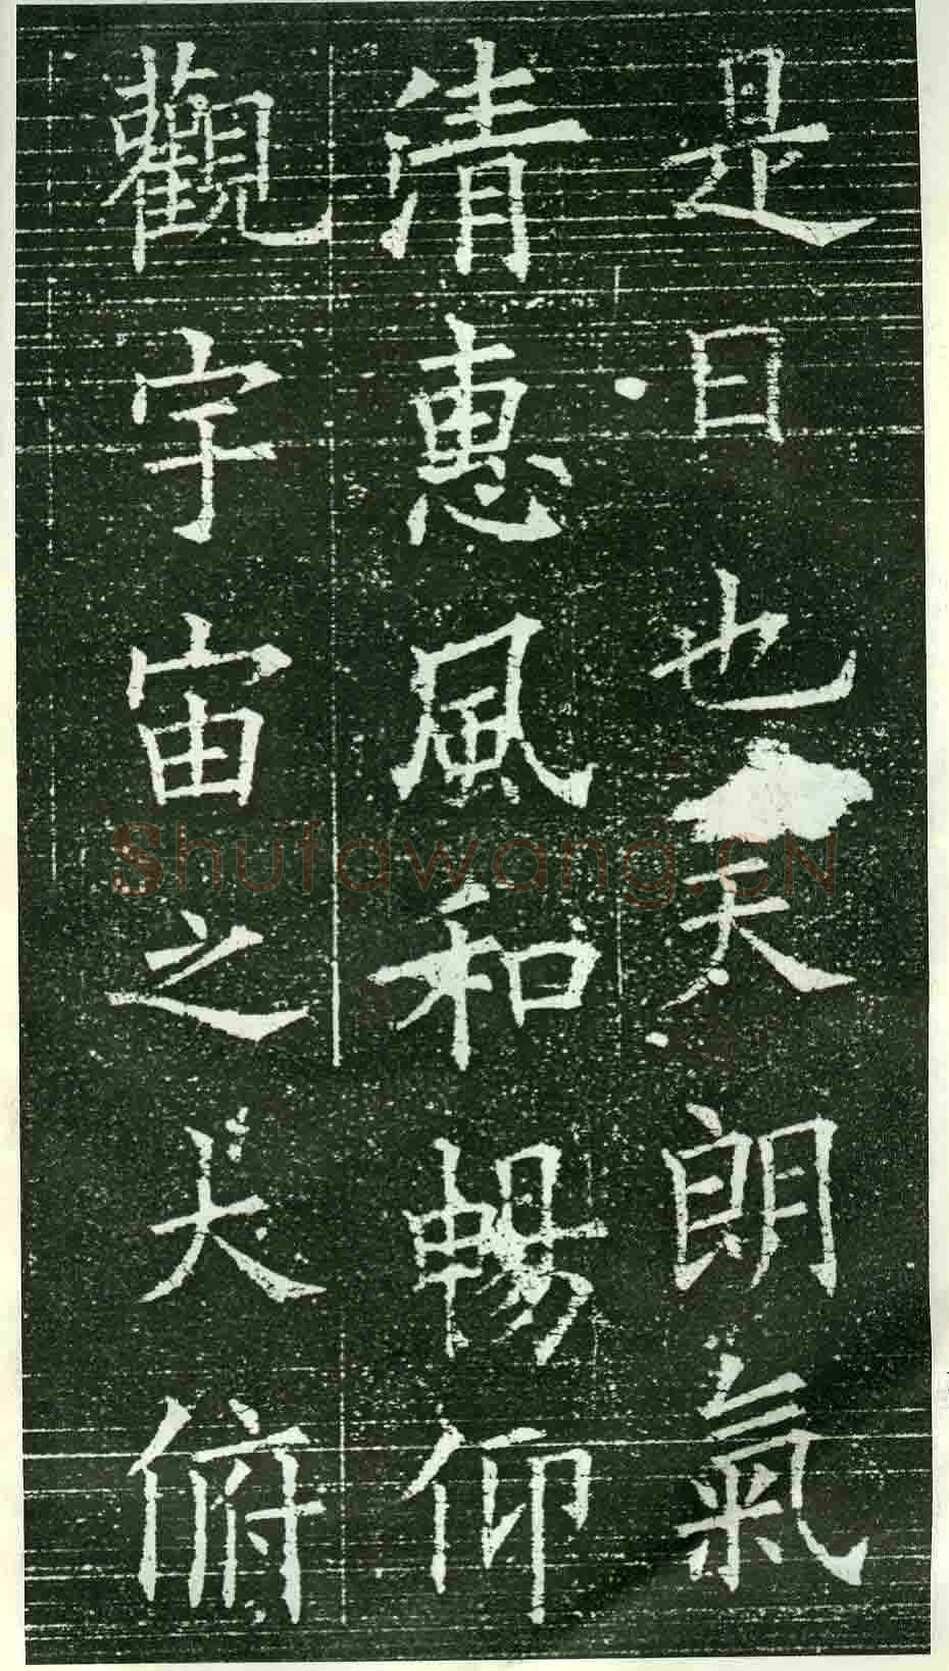 是日也天朗氣
清惠風和暢仰
觀宇宙之大俯
Shufawang.CN